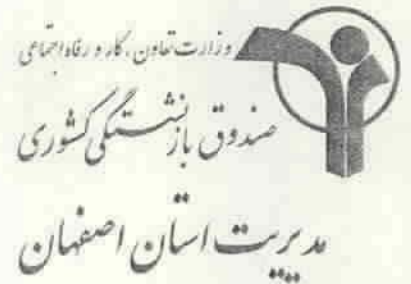 وزارت تعاون، کار و رفاه اجتماعی
صندوق بازنشستگی کشوری
مدیریت استان اصفهان